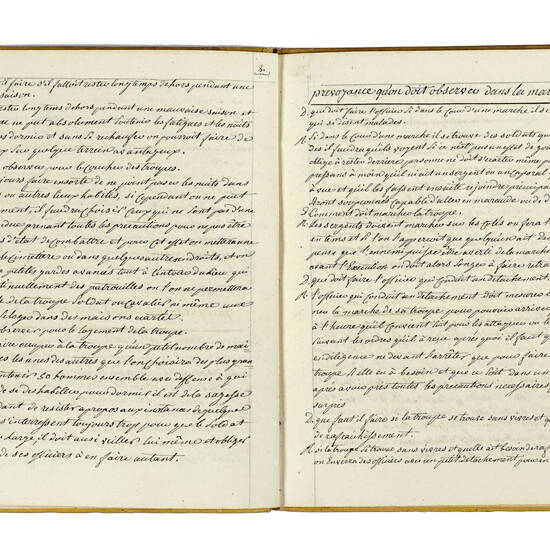 il faire s'il falloit rester long tems dehors pendant une
saison.
rester long tems dehors pendant une mauvaise saison et
ne put absolument soutenir les fatigues et les nuits
dormir et sans se rechaufer on pouroit faire de
sur quelque terrein avantageux.
observer pour le coucher des troupes.
jours faire ensorte de ne point passer les nuits dans
ou autres lieux habités, si cependant on ne peut
ment, il faudra choisir ceux qui ne sont pas d'une
due prenant toutes les precautions pour ne pas être
d'état de combattre et pour cet effet on mettra une
le cimettiere ou dans quelques autres droits, et on
petites gardes avancées tout à l'entour du lieu qui
tinuellement des patrouilles on l'on ne permettra
de la troupe soldat ou cavalier ni même aux
se loger dans des maisons ecartés
observer pour le logement de la troupe.
faire occuper à la troupe qu'un petit nombre de mai
les unes des autres que l'on choisira des plus gran
contenir 50 hommes ensemble avec deffense à qui
de se deshabiller pour dormir il est de la sagesse
dant de resister apropos aux instances de quelque
s'interressent toujours trop pour que le soldat
au large, il doit aussi veiller lui même et obliger
de ses officiers à en faire autant.
8.
prevoyance qu'on doit observer dans la mar
D. que doit faire l'officier si dans le cours d'une marche il se
qui se disent malades.
R. Si dans le cours d'une marche il se trouve des soldats qui
des il faudra qu'ils voyent si ce n'est pas un effet de
obligé à rester derriere personne ne doit s'ecarter même
pressans à moins qu'il n'ait un sergent ou un caporal
à vue et qu'il les fassent ensuite rejoindre
seront soupçonnés capable d'aller en maraude ou de d
D. Comment doit marcher la troupe.
R. Les sergents doivent marcher sur les côtés on fera
en tems et si l'on s'apperçoit que quelqu'un ait des
pense que l'ennemi puisse être averti de la marche
avant l'execution on doit alors songer à faire retra
D. que doit faire l'officier qui conduit un detachement
R. l'officier qui conduit un detachement doit mesurer
no la marche de sa troupe pour pouvoir arriver
à l'heure qu'il convient soit pour les attaques ou
suivant les ordres qu'il a reçu après quoi il faut
en diligence ne devant s'arreter que pour faire
troupe si elle en à besoin et que ce soit dans un
après avoir pris toutes les precautions necessaires,
surpris
D. que faut il faire si la troupe se trouve sans vivres et
de rafraichissement.
R. si la troupe se trouve sans vivres et quelle ait besoin de rafr
on enverra des officiers avec un petit detachement pour